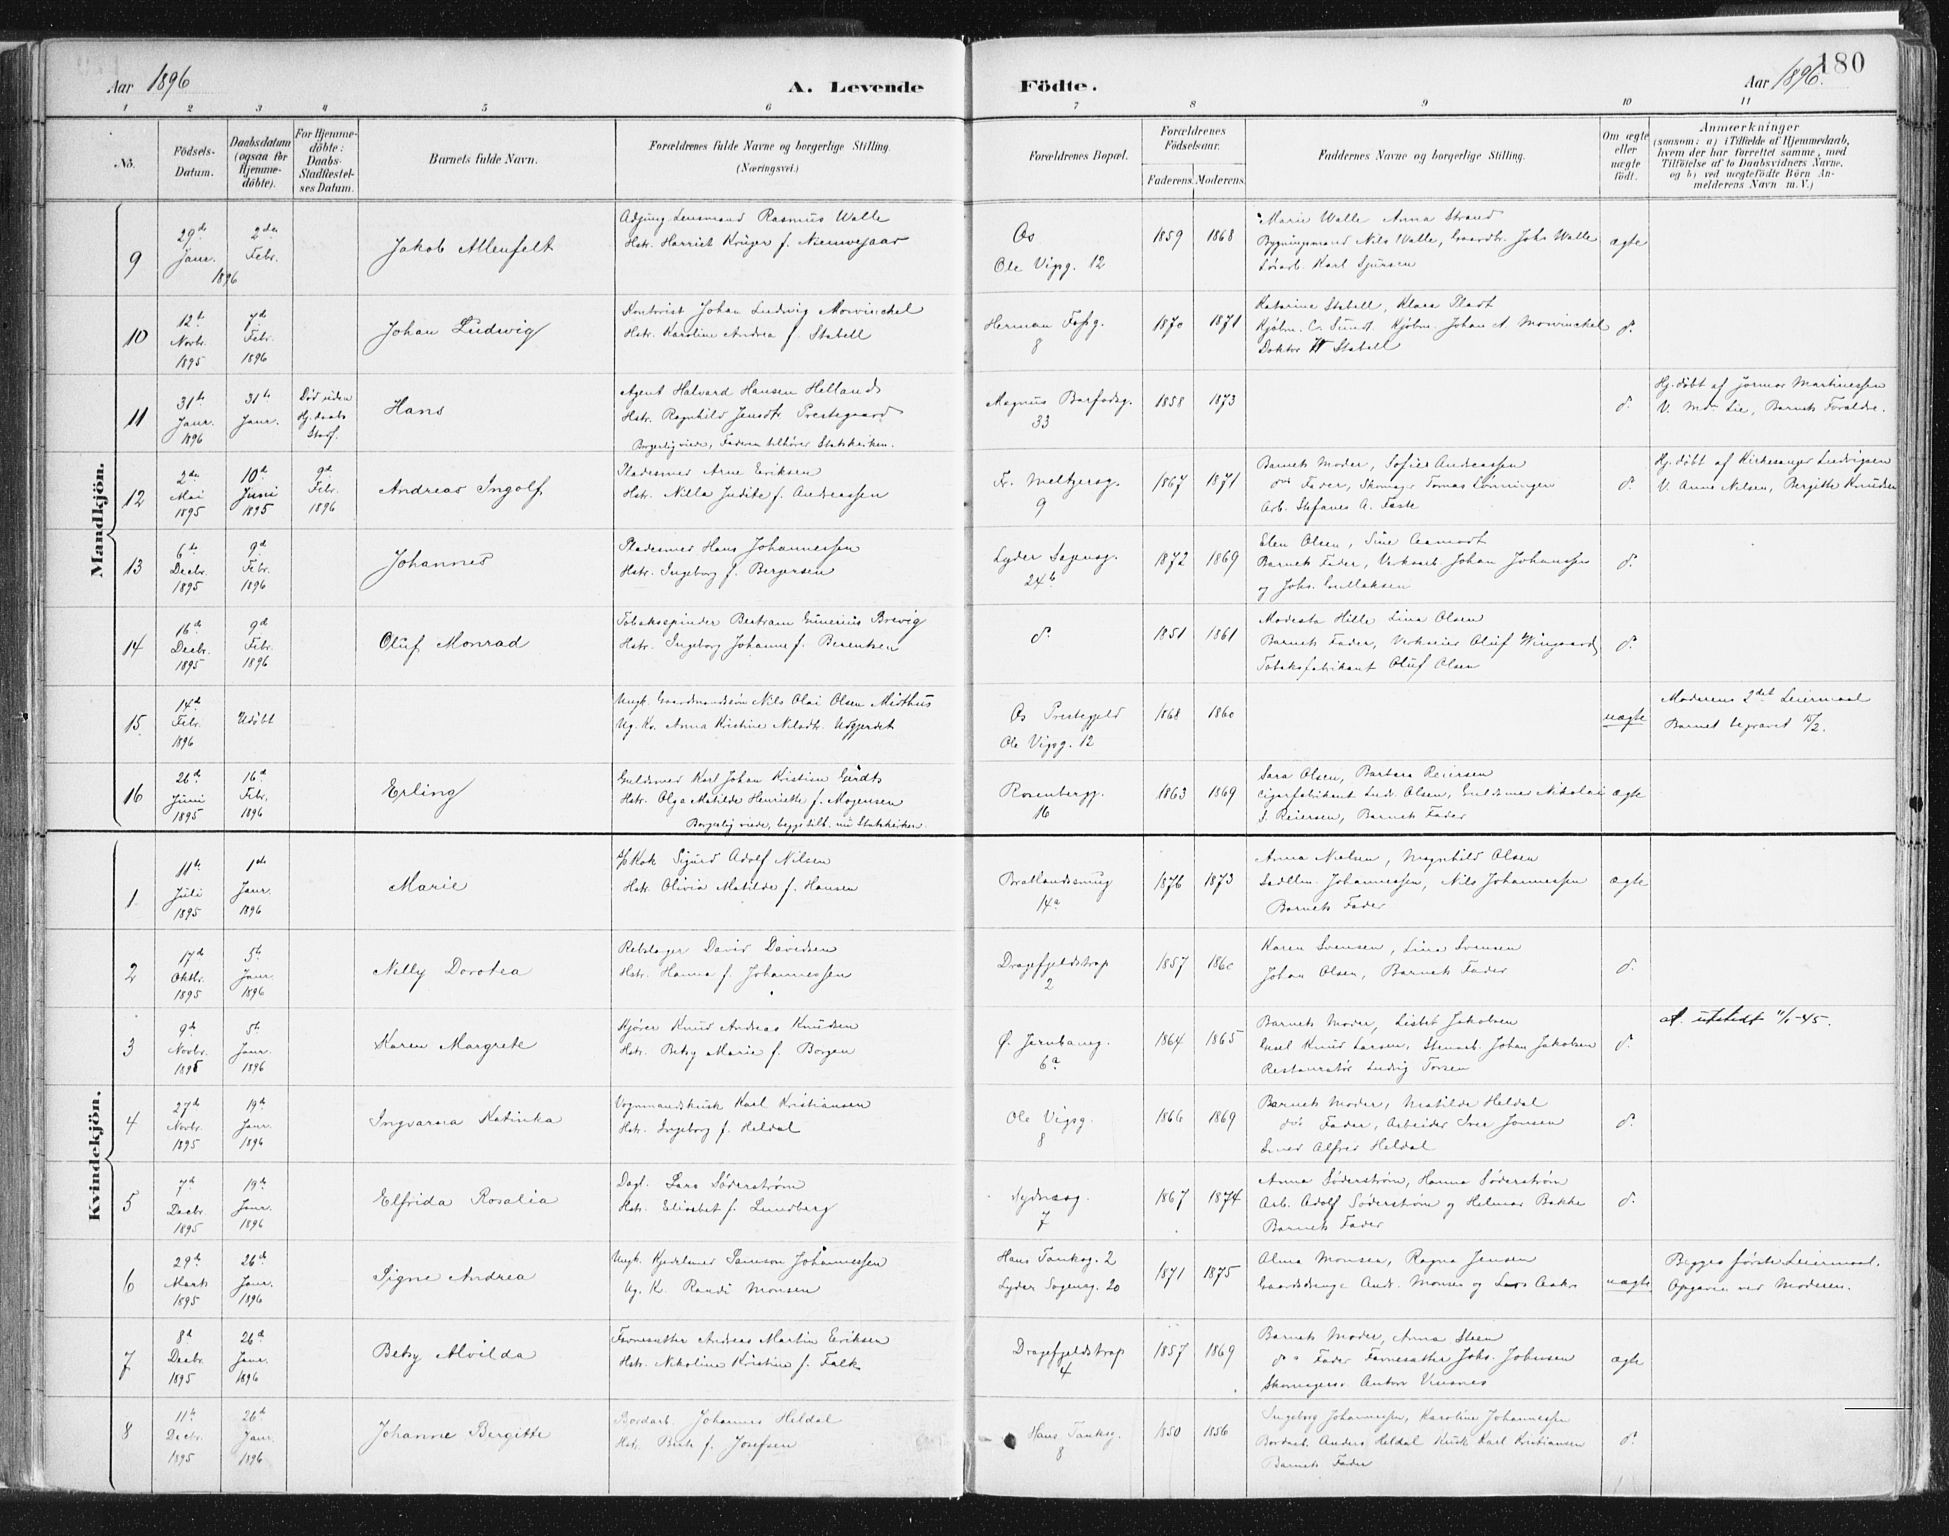 180
Aar 1896 A. Levende Födte. Aar 1896.
1 2 3 4 5 6 7 8 9 10 11
No. Födsels-Datum. Daabsdatum (ogsaa for Hjemme-döbte). For Hjemme-döbte: Daabs-Stadfæstel-ses Datum. Barnets fulde Navn. Forældrenes fulde Navne og borgerlige Stilling. (Næringsvei.) Forældrenes Bopæl. Forældrenes Födselsaar. Faderens. Moderens. Faddernes Navne og borgerlige Stilling. Om ægte eller uægte födt. Anmærkninger (saasom: a) i Tilfælde af Hjemmedaab, hvem der har forrettet samme, med Tilföielse af to Daabsvidners Navne, og b) ved uægtefödte Börn An-melderens Navn m. V.)
Mandkjön.
9 29de Janr. 1896 2den Febr. Jakob Allenfelt
Rasmus Walle
Hstr. Harriet Krüger f. Nieuwejaar
Os
Ole Vigsg. 12
1859 1868
Marie Walle Anna Strand
Bygningsmand Nils Walle, Gaardbr. Johs Walle
Karl Sjursen
ægte
10 12te Novbr. 1895 7d Febr. 1896 Johan Ludwig
Kontorist Johan Ludwig Mowinckel
Hstr. Karoline Andrea f. Stabell
Herman Fossg.
8
1870 1871
Katarine Stabell, Klara Pladt
Kjøbm. C. Sundt. Kjøbm. Johan A. Mowinckel
Doktor H Stabell
do.
11 31te Janr. 1896 31te Janr. Død uden Hj. daabs Stadf. Hans
Agent Halvard Hansen Helland
Hstr. Ragnhild Jensdtr. Prestegaard
Borgerlig viede, Faderen tilhører Statskirken.
Magnus Barfodsg.
33
1858 1873
do.
Hj. døbt af Jormor Martinessen
V. Lie, Barnets Forældre.
12 2den Mai 1895 10d Juni 1895 9d Febr. 1896 Andreas Ingolf
Pladesmed Arne Eriksen
Hstr. Nilla Judite f. Andreassen
Fr. Meltzersg.
9
1867 1871
Barnets Moder, Sofie Andreassen
do Fader, Skomager Tomas Lønningen
Arb. Stefanus A. Faste
do.
Hj. døbt af Kirkesanger Ludvigsen
V. Anne Nilsen, Bergitte Knudsen
13 6te Decbr. 1895 9d Febr. 1896 Johannes
Pladesmed Hans Johannessen
Hstr. Ingeborg f. Bergersen
Lyder Sagensg.
24b
1872 1869
Elen Olsen, Sine Aamodt
Barnets Fader, Johan Johanssen
og Johs. Gullaksen
do.
14 16de Decbr. 1895 9d Febr. 1896 Oluf Monrad
Tobaksspinder Bertram Gunerius Brevig
Hstr. Ingeborg Johanne f. Berentsen
do.
1851 1861
Modesta Hille Lina Olsen
Barnets Fader, Verkseier Oluf Wingaard
Tobaksfabrikant Oluf Olsen
do.
15 14de Febr. 1896 Udøbt
Ungk. Gaardmandssøn Nils Olai Olsen Midthus
Ug. Kv. Anna Kristine Nilsdtr. Uggjerdet
Os Prestegjeld
Ole Vigsg. 12
1868 1860
uægte
Moderens 2det Leiermaal
Barnet begravet 15/2.
16 26de Juni 1895 16d Febr. 1896 Erling
Guldsmed Karl Johan Kristian Gerdts
Hstr. Olga Matilde Henriette f. Mogensen
Borgerlig viede, begge tilh. nu Statskirken.
Rosenbergg.
16
1863 1869
Sara Olsen, Barbara Reiersen
Cigarfabrikant Ludv. Olsen, Guldsmed Nikolai
J. Reiersen, Barnets Fader
ægte
Kvindekjön.
1 11te Juli 1895 1ste Janr. 1896 Marie
Kok Sigurd Adolf Nilsen
Hstr. Olivia Matilde f. Hansen
Bratlandssmug
14a
1876 1873
Anna Nielsen, Magnhild Olsen
Sadelm. Johannessen, Nils Johannessen
Barnets Fader
ægte
2 17d Oktbr. 1895 5te Janr. 1896 Nelly Dorotea
Rebslager David Davidsen
Hstr. Hanna f. Johannessen
Dragefjeldstrap
2
1857 1860
Karen Svensen, Lina Svensen
Johan Olsen, Barnets Fader
do.
3 9de Novbr. 1895 5te Janr. 1896 Karen Margrete
Kjører Knud Andreas Knudsen
Hstr. Betsy Marie f. Borgen
Ø. Jernbaneg.
6a
1864 1865
Barnets Moder, Lisbet Jakobsen
Knud Larsen, Stenarb. Johan Jakobsen
Restauratør Ludvig Torsen
do.
A. utstedt 11/1-45.
4 27de Novbr. 1895 19de Janr. 1896 Ingvarna Katinka
Vognmandskusk Karl Kristiansen
Hstr. Ingeborg f. Heldal
Ole Vigsg.
8
1866 1869
Barnets Moder, Matilde Heldal
do Fader, Arbeider Iver Jonsen
Smed Alfred Heldal
do.
5 7de Decbr. 1895 19de Janr. 1896 Elfrida Rosalia
Dagl. Lars Söderström
Hstr. Elisabet f. Lundberg
Nydnesg.
7
1867 1874
Anna Söderström, Hanna Söderström
Arb. Adolf Söderström og Helmar Bakke
Barnets Fader
do.
6 29de Marts 1895 26de Janr. 1896 Signe Andrea
Ungk. Kjedelsmed Samson Johannessen
Ug. K. Randi Monsen
Hans Tanksg. 2
Lyder Sagensg. 20
1871 1875
Alma Monsen, Ragna Jensen
Gaardsdrenge Andr. Monsen og Lars Aakr
uægte
Begges første Leiermaal.
Opgaven ved Moderen.
7 8d Decbr. 1895 26d Janr. 1896 Betsy Alvilda
Farvesætter Andreas Martin Eriksen
Hstr. Nikoline Kristine f. Falk
Dragefjeldstrap
4
1857 1869
Barnets Moder, Anna Steen
do Fader Farvesætter Johs. Johnsen
Skomagersv. Anton Vinsnes
ægte
8 11te Decbr. 1895 26de Janr. 1896 Johanne Bergitte
Bordarb. Johannes Heldal
Hstr. Berte f. Josefsen
Hans Tanksg.
8
1850 1856
Ingeborg Johannessen, Karoline Johannessen
Bordarb. Anders Heldal Kusk Karl Kristiansen
Barnets Fader
do.